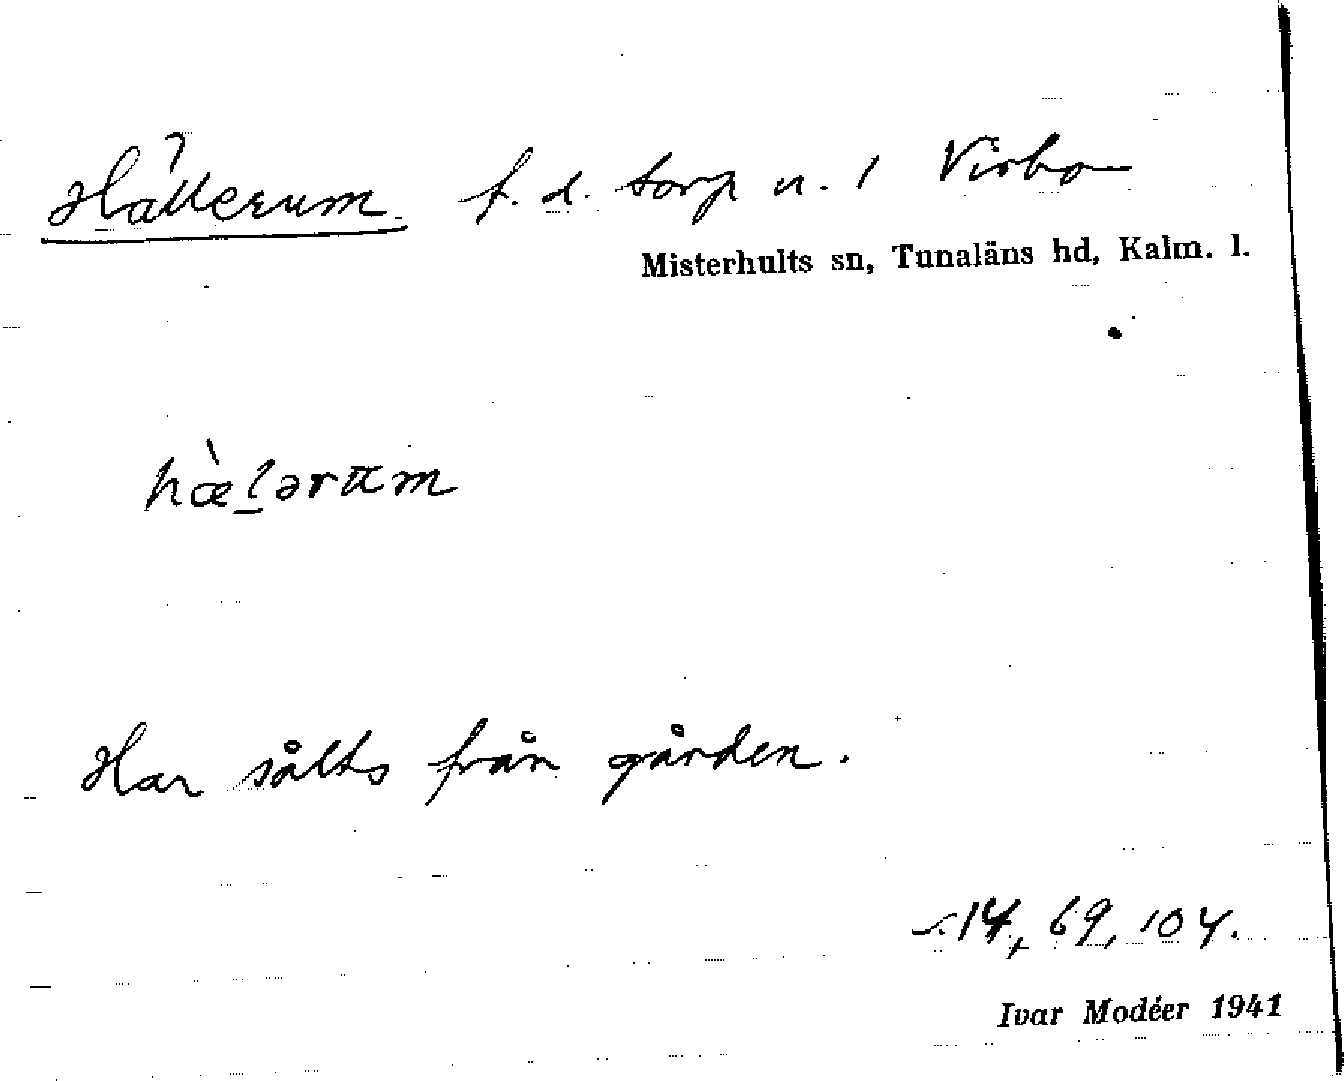 Hällerum f. d. torp u. 1 Virbo
Misterhults sn, Tunaläns hd, Kalm. l.
hæ̀lərum
Har sålts från gården.
14, 69, 104.
Ivar Modéer 1941